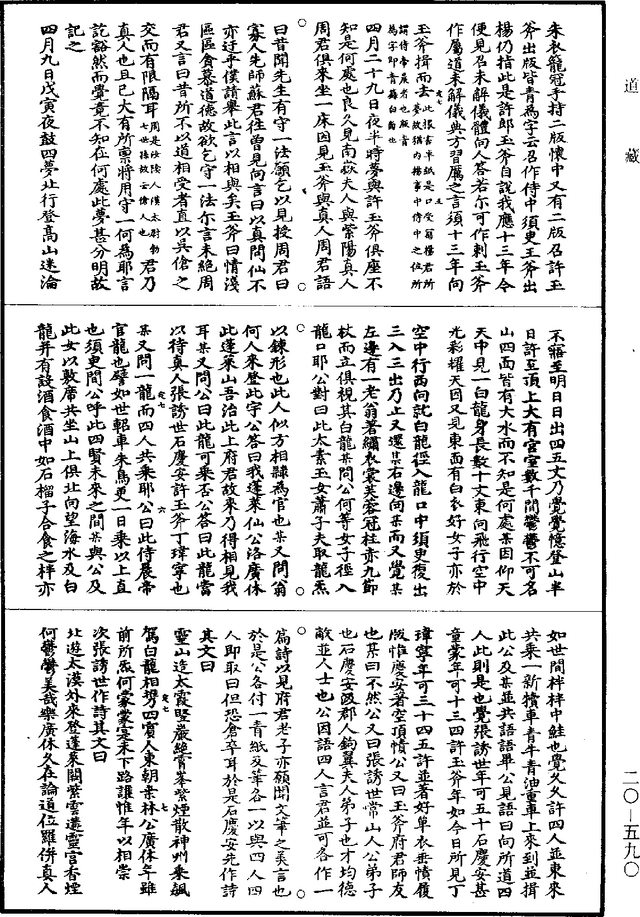 道藏
朱衣籠冠手持二版懷中又有二版召許玉
斧出版皆青為字云召作侍中須臾玉斧出
楊仍指此是許郎玉斧自說我應十三年今
便見召未解儀體向人答若尔可作刺玉斧
作屬道未解儀典方習厲之言須十三年向
玉斧揖而去
四月二十九日夜半時夢與許玉斧俱座不
知是何處也良久見南嶽夫人與紫陽真人
周君俱來坐一床因見玉斧與真人周君語
曰昔聞先生有守一法願乞以見授周君曰
寡人先師蘇君往曾見向言曰以真問仙不
亦迂乎僕請舉此言以相與矣玉斧曰情淺
區區貪慕道德故欲乞守一法尔言未絕周
君又言曰昔所不以道相受者直以吳傖之
交而有限隔耳君乃
真人也且已大有所禀將用守一何為耶言
訖豁然而覺竟不知在何處此夢甚分明故
記之
四月九日戊寅夜鼓四夢北行登高山迷淪
不寤至明日日出四五丈乃覺覺憶登山半
日許至頂上大有宮室數千間鬱鬱不可名
山四面皆有大水而不知是何處某因仰天
天中見一白龍身長數十丈東向飛行空中
光彩耀天因又見東面有白衣好女子亦於
空中行西向就白龍徑入龍口中須臾復出
三入三出乃止又還某右邊向某而又覺某
左邊有一老公著繡衣裳芙蓉冠柱赤九節
杖而立俱視其白龍某問公何等女子徑入
龍口耶公對曰此太素玉女蕭子夫取龍炁
以鍊形也此人似方相隸為官也某又問翁
何人來登此宇公答曰我蓬萊仙公洛廣休
此蓬萊山吾治此上府君故來乃得相見我
耳某又問公曰此龍可乘否公答曰此龍當
以待真人張誘世石慶安許玉斧丁瑋寧也
某又問一龍而四人共乘耶公曰此侍晨帝
官龍也譬如世軺車朱鳥更一日乘以上直
也須臾間公呼此四賢未來之間某與公及
此女以敷席共坐山上俱北向望海水及白
龍并有設酒食酒中如石榴子合食之柈亦
如世間柈柈中鮭也覺久久許四人並東來
共乘一新犢車青牛青油重車上來到並揖
此公及某並共語語畢公見語曰向所道四
人此則是也覺張誘世年可五十石慶安甚
童蒙年可十三四許玉斧年如今日所見丁
瑋寧年可三十四五許並著好單衣垂幘履
版惟慶安著空頂幘公又曰玉斧府君師友
也某曰不然公又曰張誘世常山人公弟子
也石慶安汲郡人鉤翼夫人弟子也才均德
敵並人士也公因語四人言君並可各作一
篇詩以見府君老子亦願聞文筆之美言也
於是公各付一青紙及筆各一以與四人四
人即取曰但恐倉卒耳於是石慶安先作詩
其文曰
靈山造太霞豎巖絕青峯紫煙散神州乘飆
駕白龍相攜四賓人東朝桑林公廣休年雖
前所炁何蒙蒙寔未下路讓惟年以相崇
次張誘世作詩其文曰
北遊太漠外來登蓬萊闕紫雲遘靈宮香煙
何鬱鬱美哉樂廣休久在論道位羅併真人
二〇—五九〇